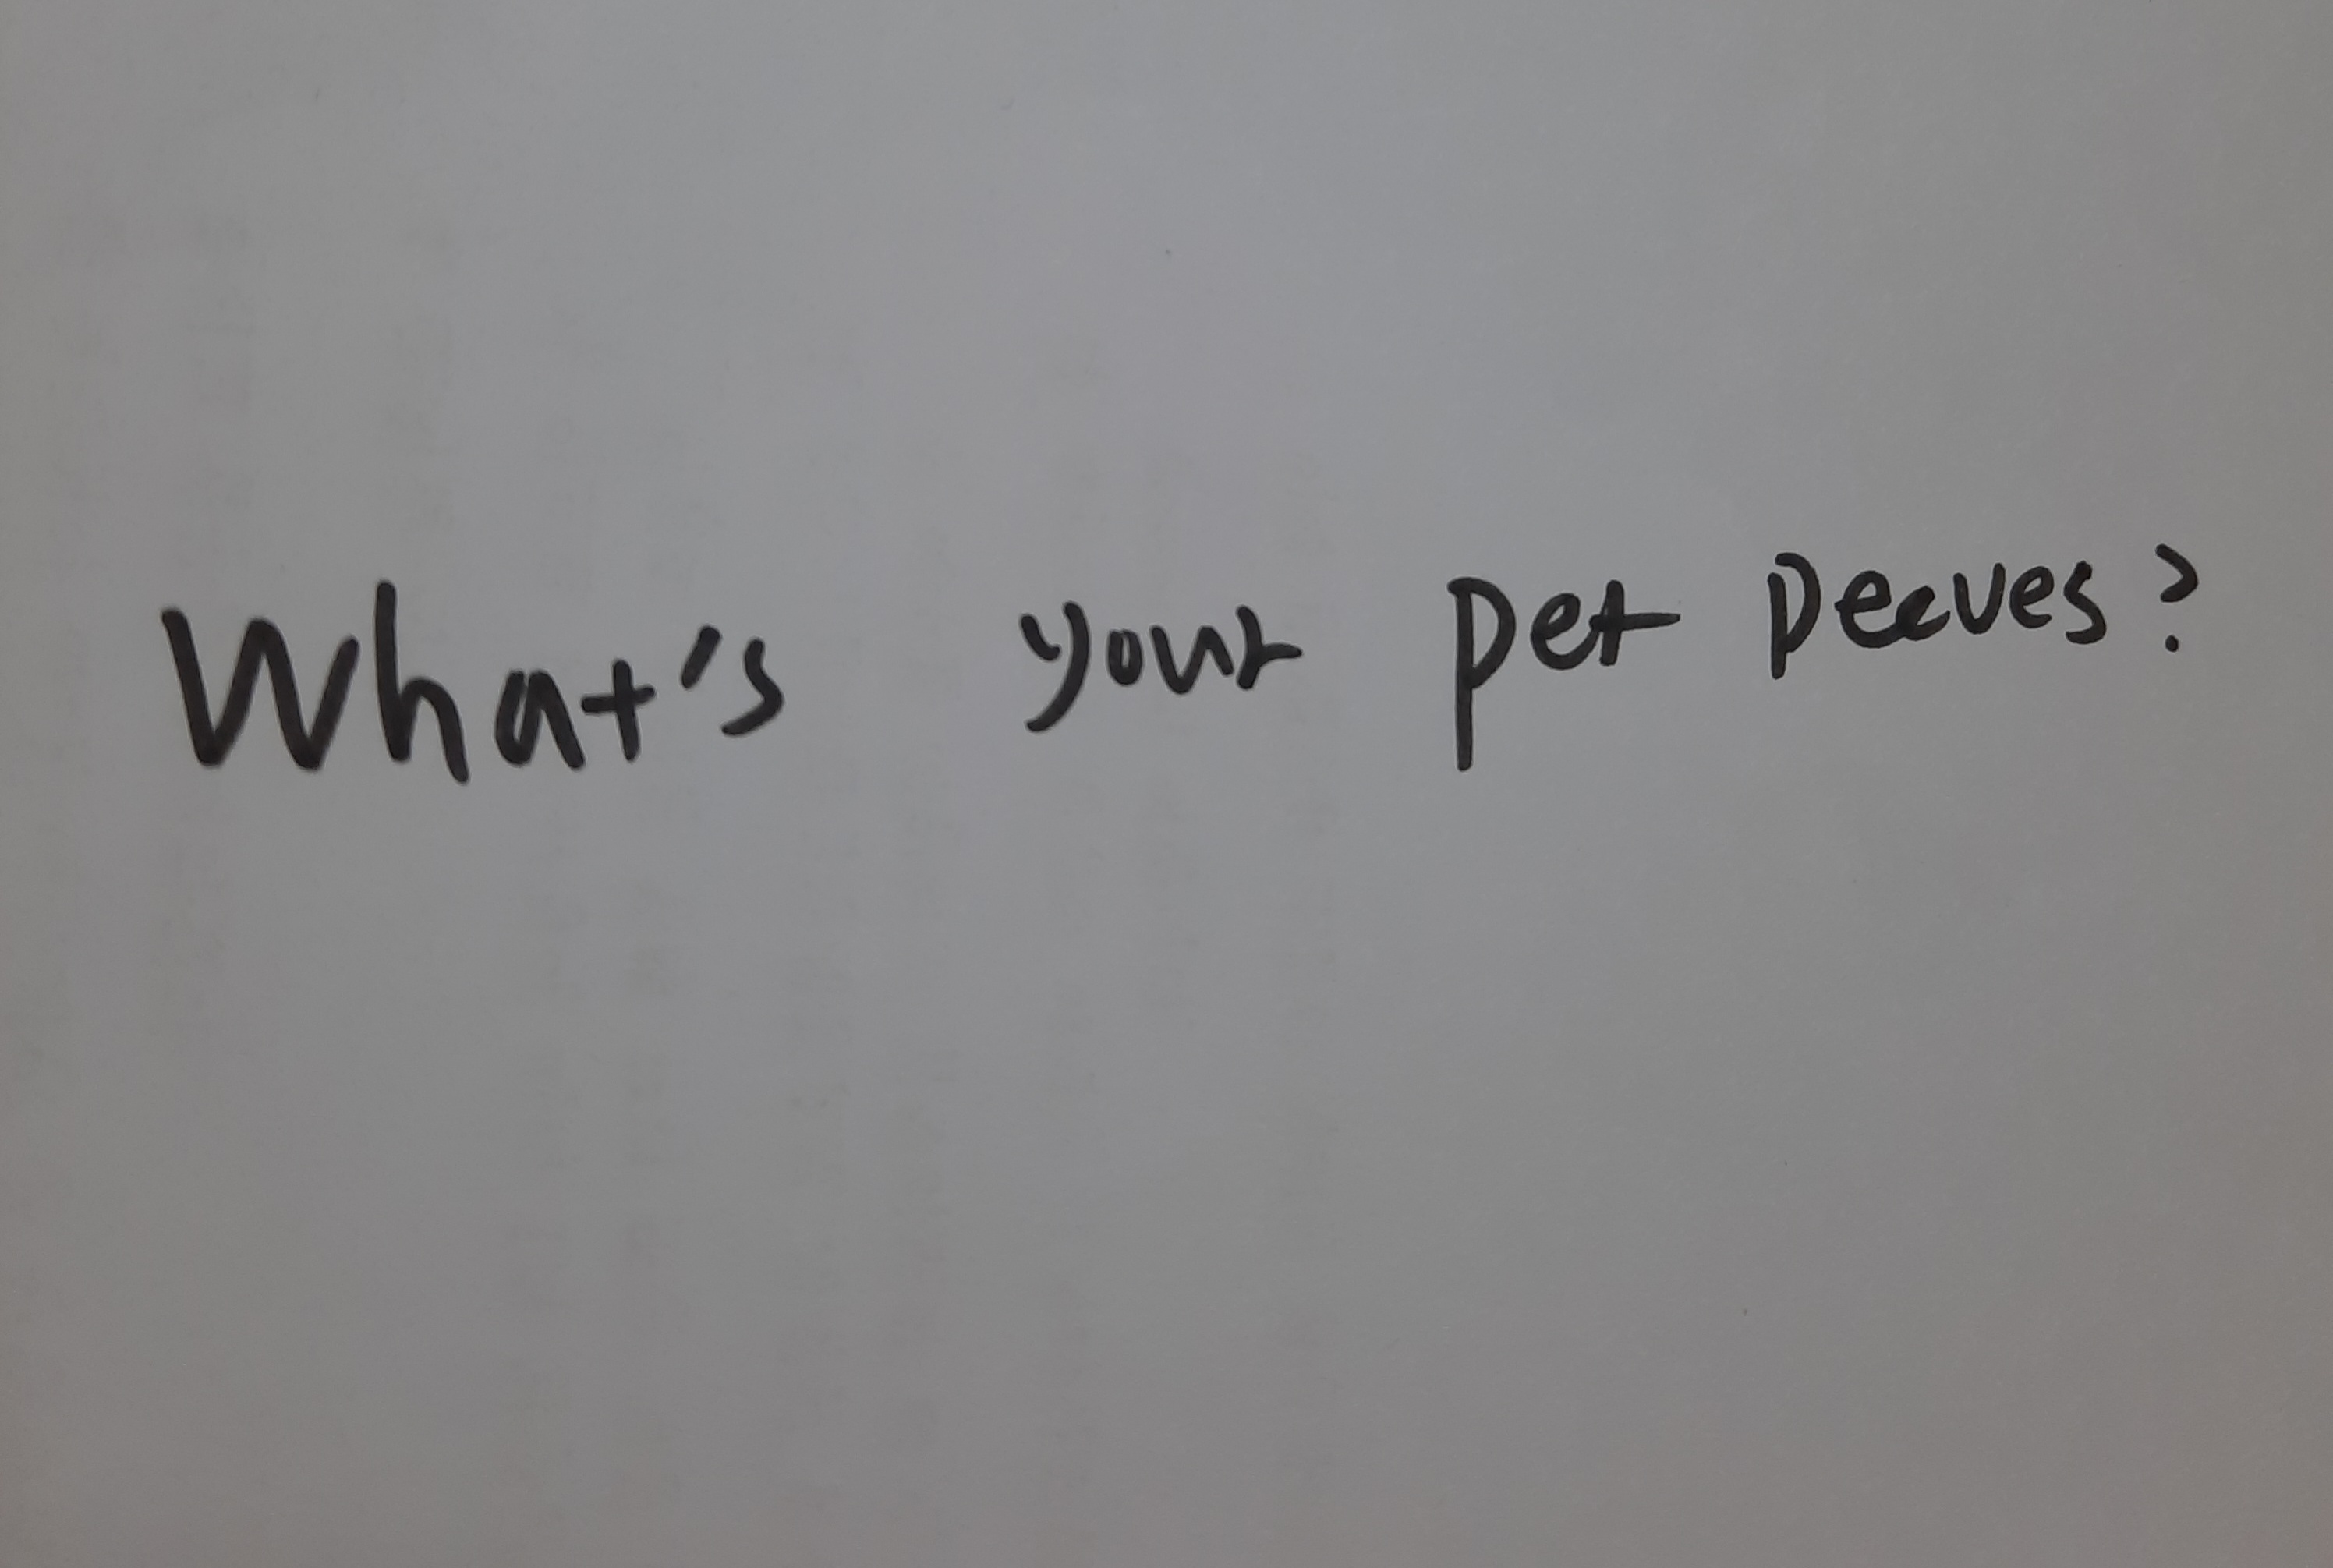 What's your pet peeves?